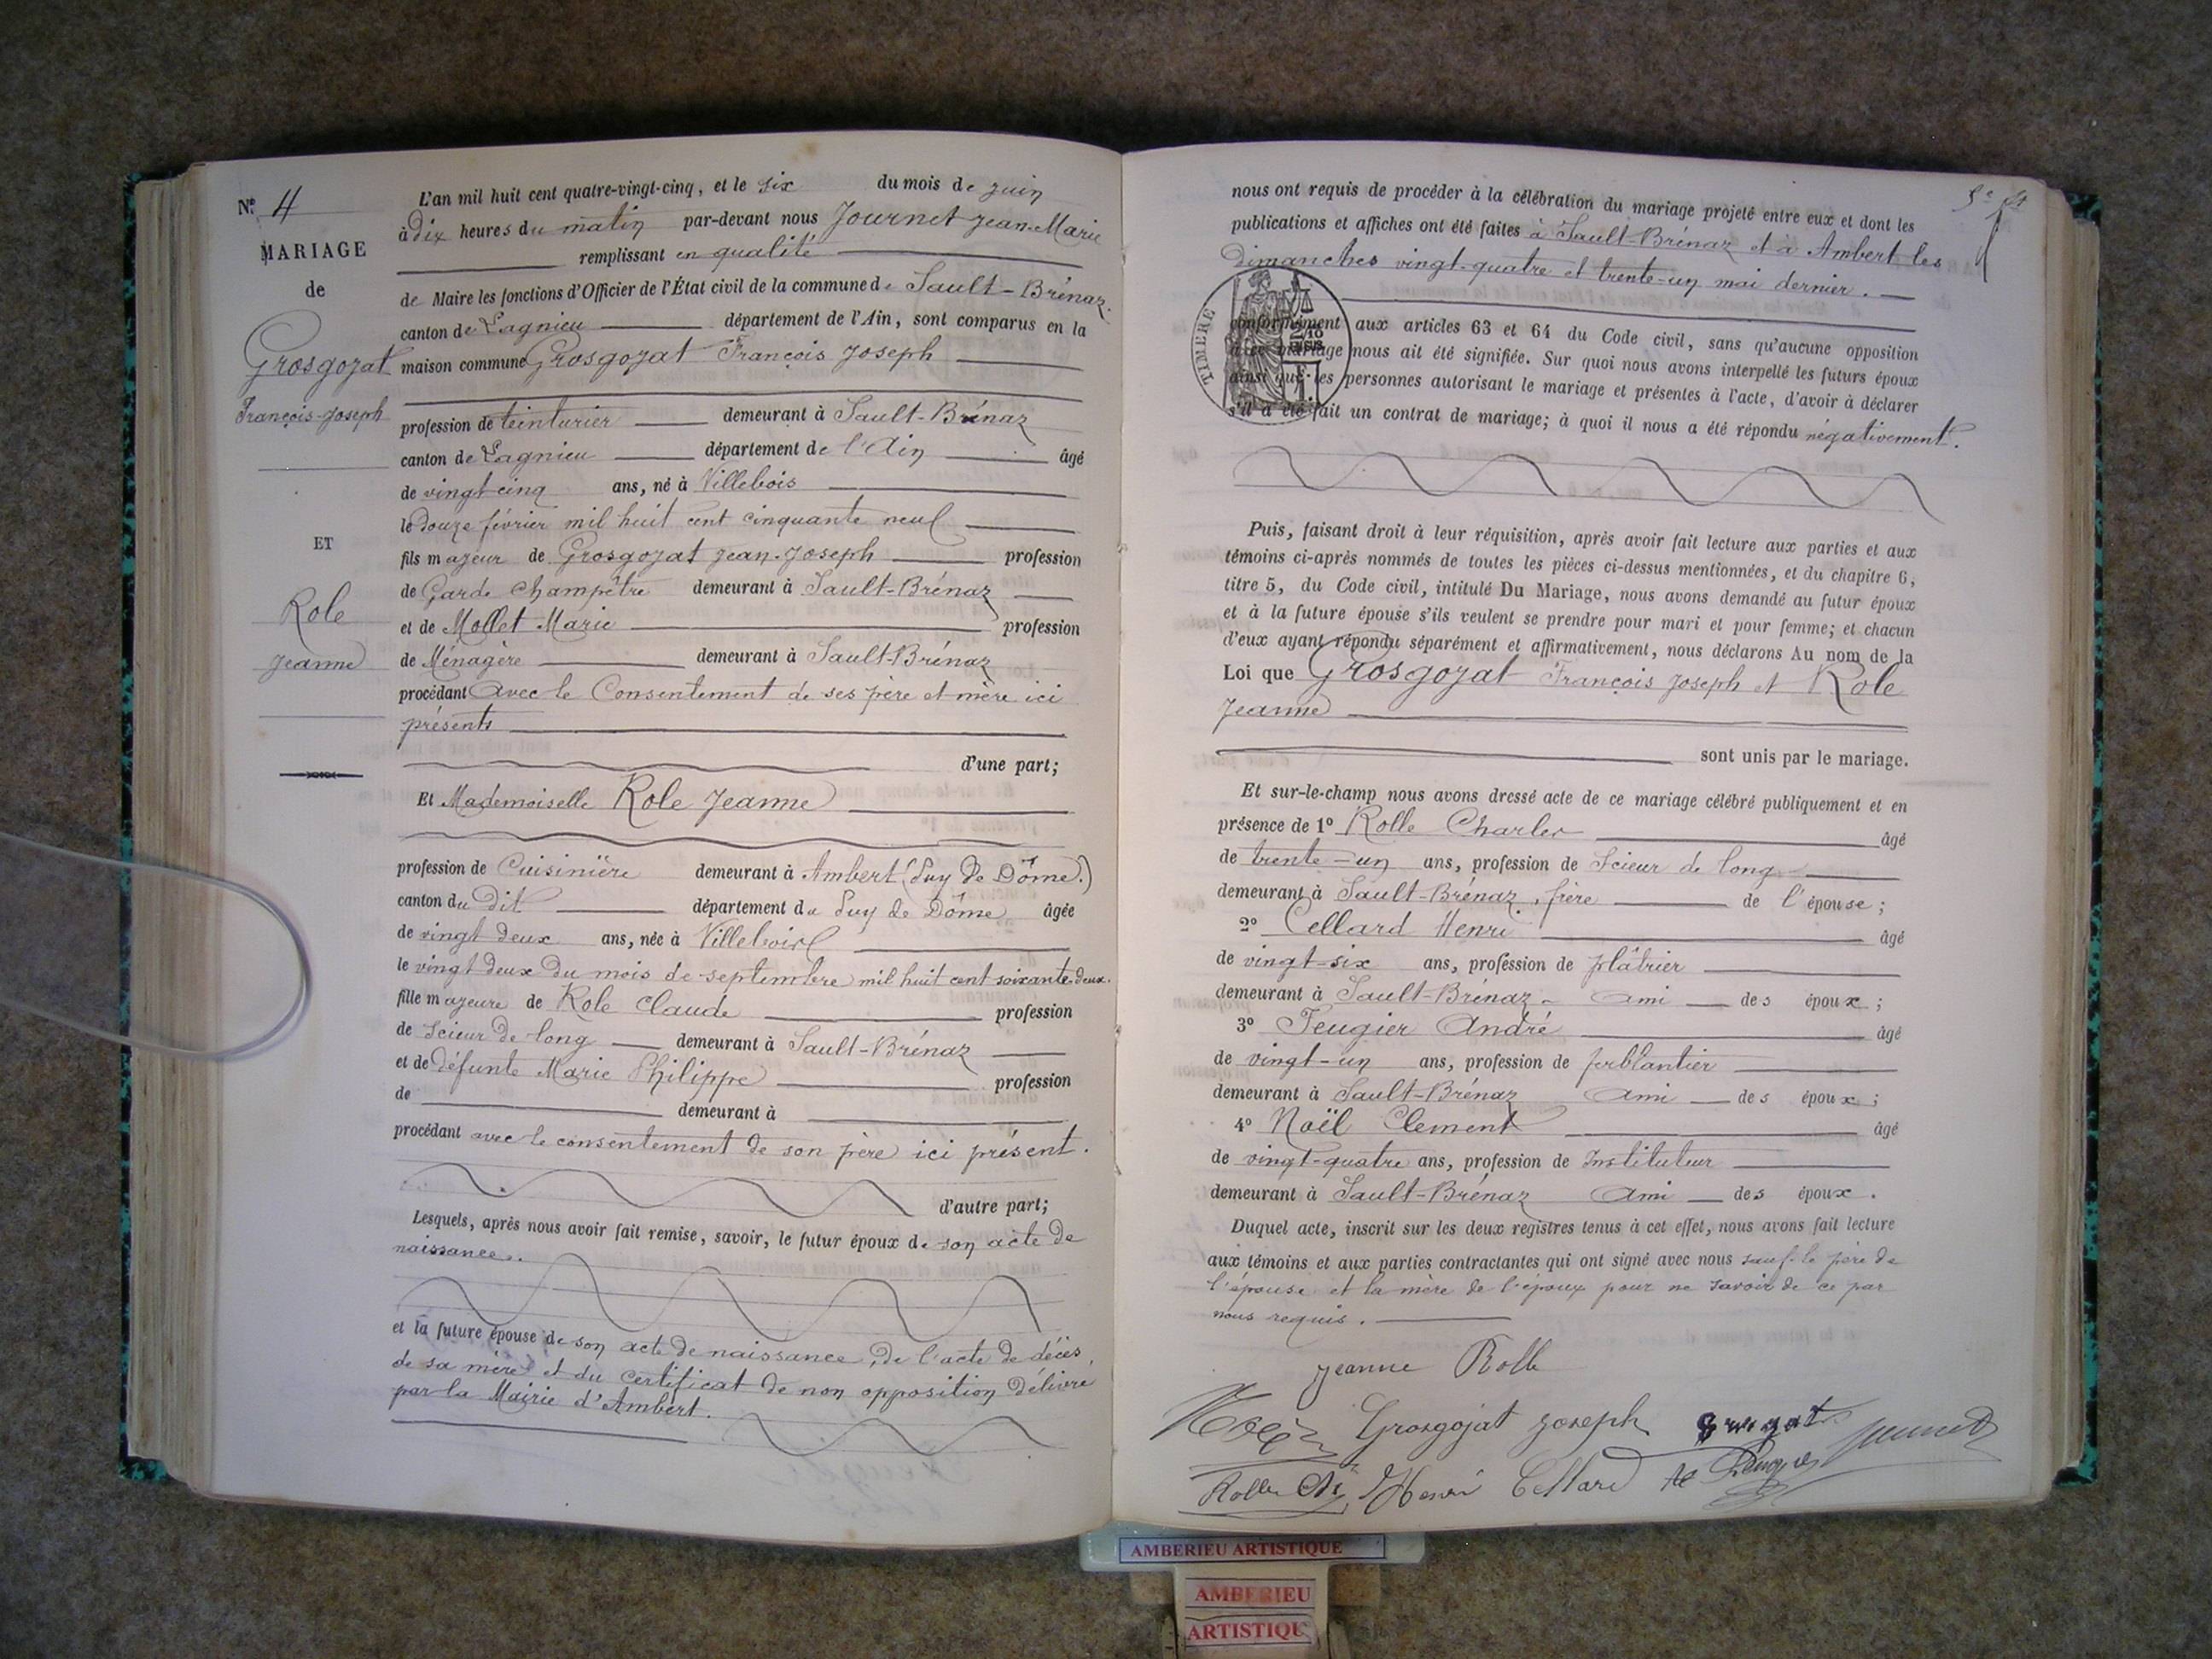 Nº 4
MARIAGE
de
Grosgojat
François-Joseph
ET
Role
Jeanne
L'an mil huit cent quatre-vingt-cinq, et le six du mois de juin
à dix heures du matin par-devant nous Journet Jean-Marie
remplissant en qualité
de Maire les fonctions d'Officier de l'État civil de la commune de Sault-Brénaz
canton de Lagnieu département de l'Ain, sont comparus en la
maison commune Grosgojat François Joseph
profession de teinturier demeurant à Sault-Brénaz
canton de Lagnieu département de l'Ain âgé
de vingt cinq ans, né à Villebois
le douze février mil huit cent cinquante neuf
fils majeur de Grosgojat Jean-Joseph profession
de Garde Champêtre demeurant à Sault-Brénaz
et de Mollet Marie profession
de Ménagère demeurant à Sault-Brénaz
procédant avec le Consentement de ses père et mère ici
présents
d'une part;
Et Mademoiselle Role Jeanne
profession de Cuisinière demeurant à Ambert (Puy de Dôme.)
canton du Dit département du Puy de Dôme âgée
de vingt deux ans, née à Villebois
le vingt deux du mois de septembre mil huit cent soixante-deux.
fille majeure de Role Claude profession
de Scieur de long demeurant à Sault-Brénaz
et de défunte Marie Philippe profession
de demeurant à
procédant avec le consentement de son père ici présent.
d'autre part;
Lesquels, après nous avoir fait remise, savoir, le futur époux de son acte de
naissance.
et la future épouse de son acte de naissance, de l'acte de décès
de sa mère et du certificat de non opposition délivré
par la Mairie d'Ambert.
nous ont requis de procéder à la célébration du mariage projeté entre eux et dont les
publications et affiches ont été faites à Sault-Brénaz et à Ambert les
dimanches vingt-quatre et trente-un mai dernier.
TIMBRE
conformément aux articles 63 et 64 du Code civil, sans qu'aucune opposition
à ce mariage nous ait été signifiée. Sur quoi nous avons interpellé les futurs époux
ainsi que les personnes autorisant le mariage et présentes à l'acte, d'avoir à déclarer
s'il a été fait un contrat de mariage; à quoi il nous a été répondu négativement.
Puis, faisant droit à leur réquisition, après avoir fait lecture aux parties et aux
témoins ci-après nommés de toutes les pièces ci-dessus mentionnées, et du chapitre 6,
titre 5, du Code civil, intitulé Du Mariage, nous avons demandé au futur époux
et à la future épouse s'ils veulent se prendre pour mari et pour femme; et chacun
d'eux ayant répondu séparément et affirmativement, nous déclarons Au nom de la
Loi que Grosgojat François Joseph et Role
Jeanne
sont unis par le mariage.
Et sur-le-champ nous avons dressé acte de ce mariage célébré publiquement et en
présence de 1º Rolle Charles âgé
de trente-un ans, profession de Scieur de long
demeurant à Sault-Brénaz, frère de l'épouse;
2º Cellard Henri âgé
de vingt-six ans, profession de plâtrier
demeurant à Sault-Brénaz - ami des époux;
3º Feugier André âgé
de vingt-un ans, profession de ferblantier
demeurant à Sault-Brénaz ami des époux;
4º Noël Clement âgé
de vingt-quatre ans, profession de Instituteur
demeurant à Sault-Brénaz ami des époux.
Duquel acte, inscrit sur les deux registres tenus à cet effet, nous avons fait lecture
aux témoins et aux parties contractantes qui ont signé avec nous sauf le père de
l'épouse et la mère de l'époux pour ne savoir de ce par
nous requis.
Jeanne Rolle
Noël Grosgojat Joseph Journet
Rolle Ch. Henri Cellard
AMBERIEU ARTISTIQUE
AMBERIEU
ARTISTIQU